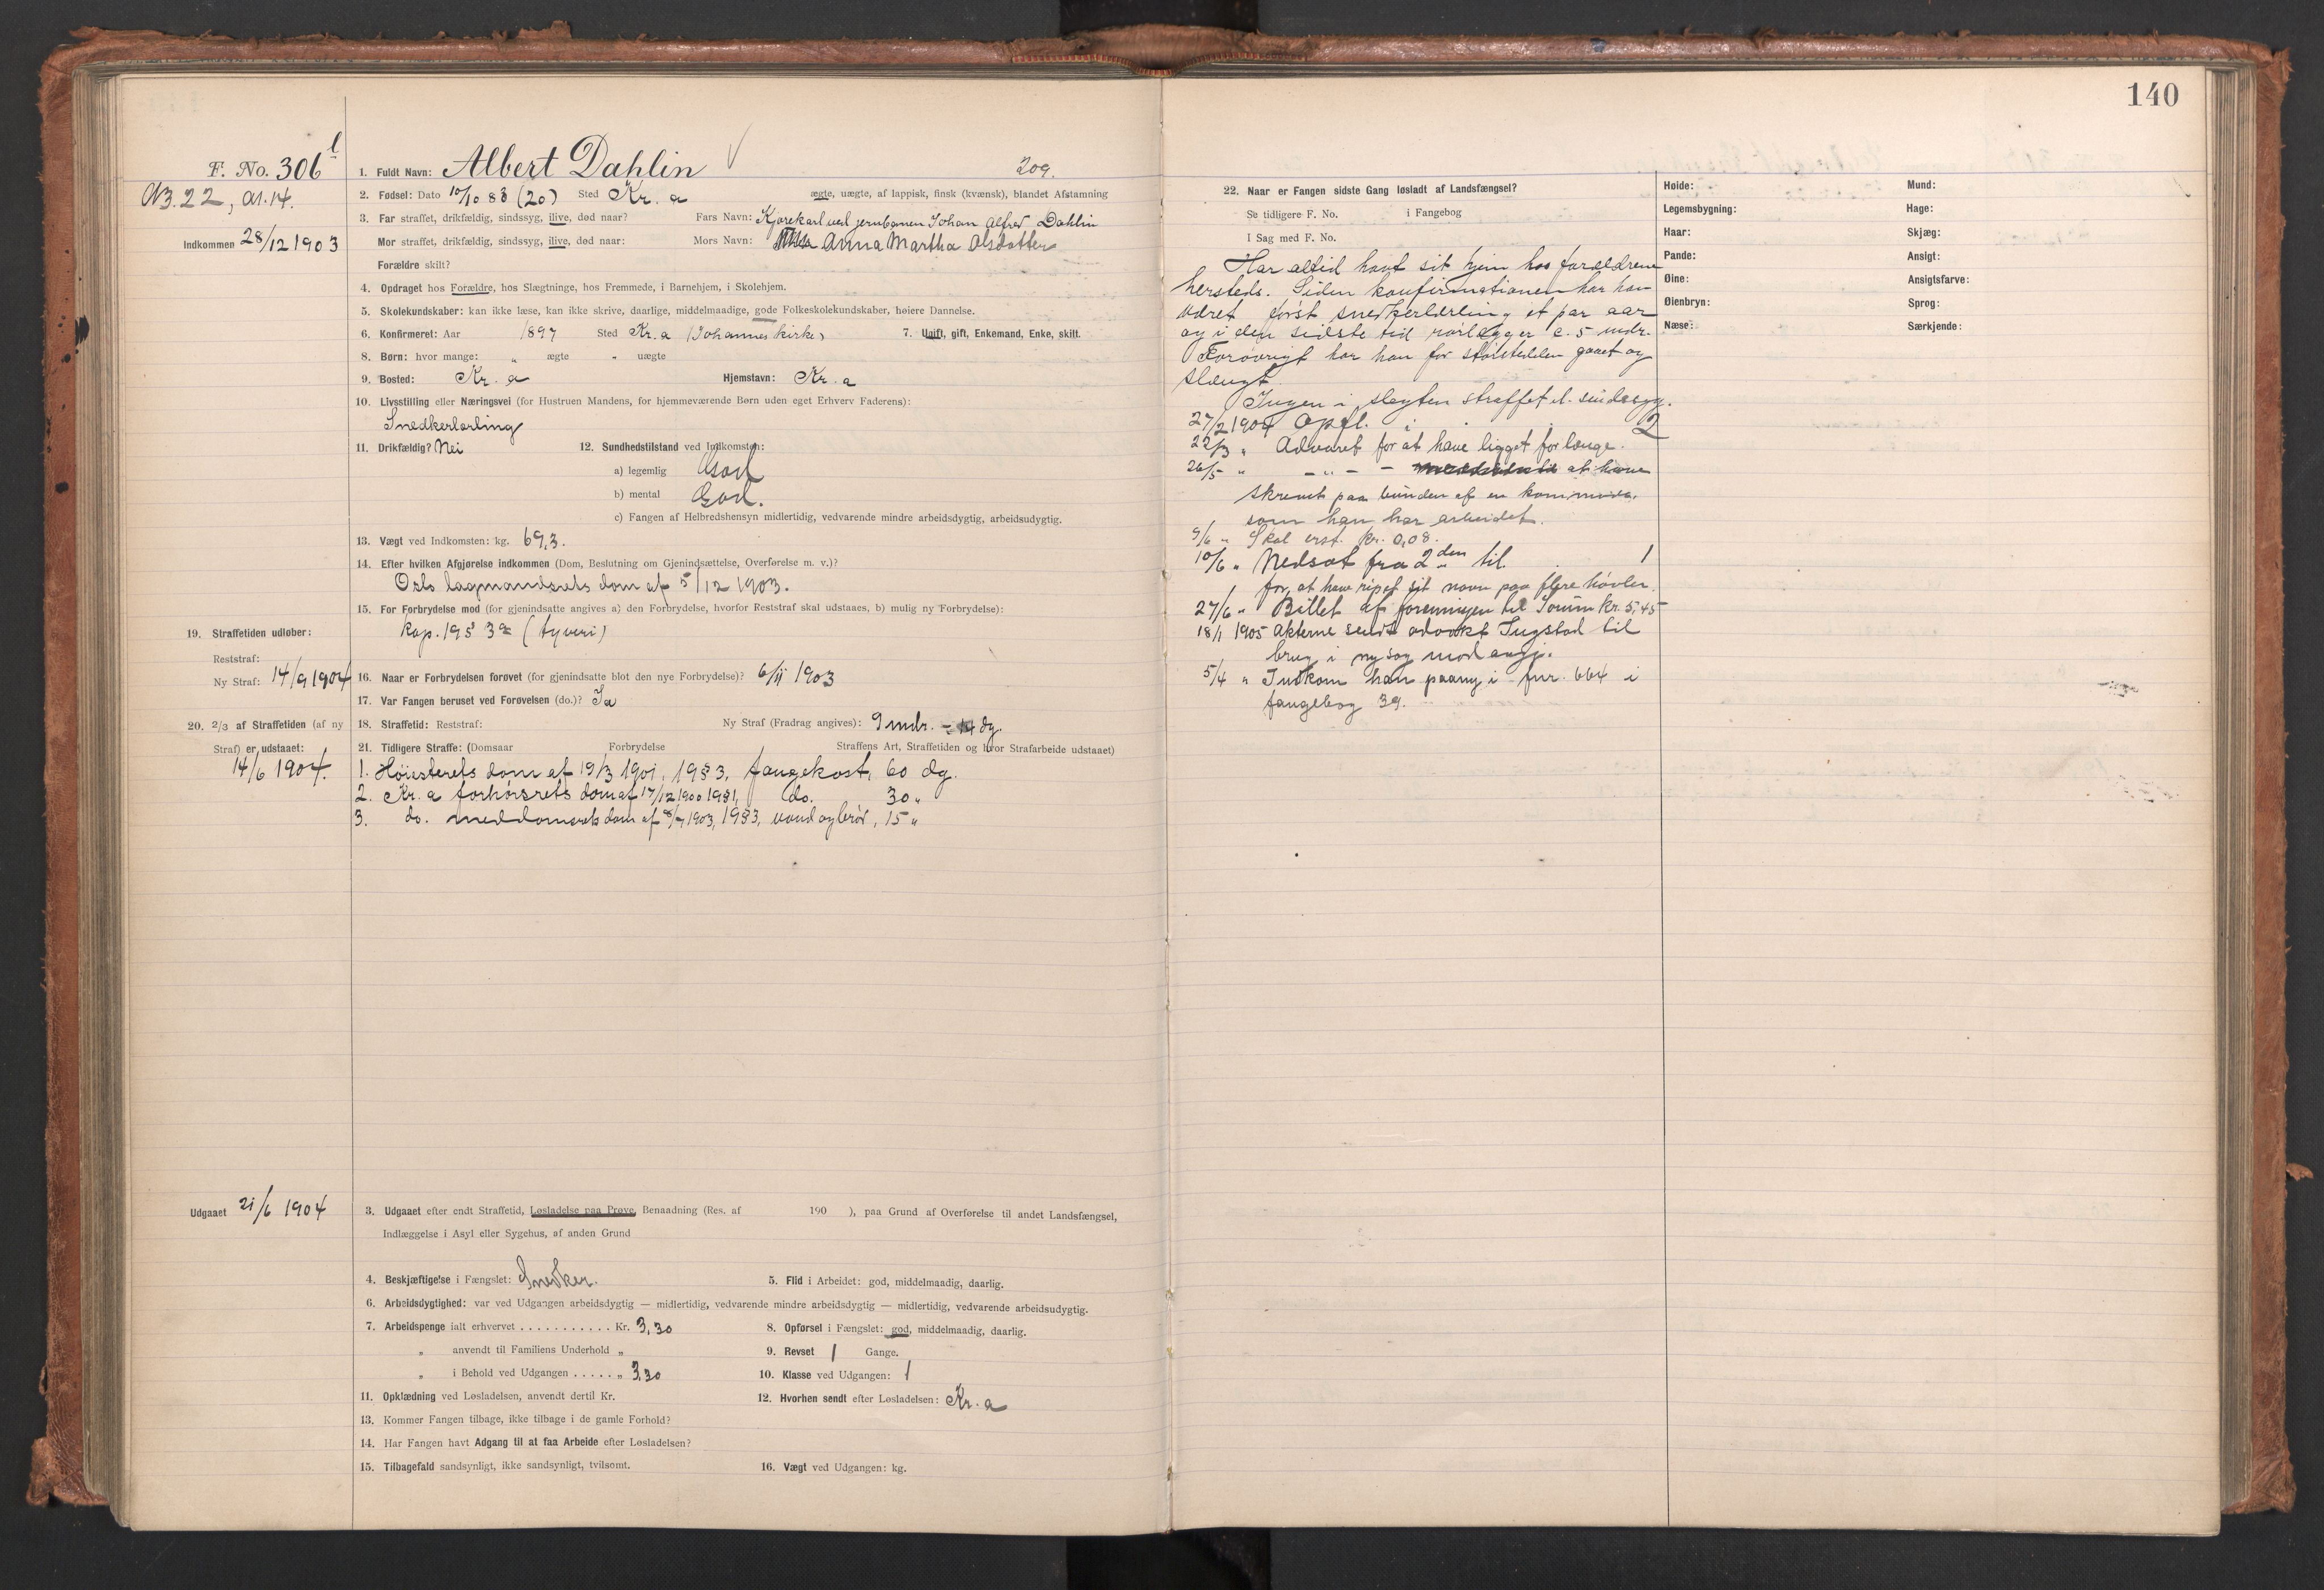 140
F. No. 306
N3.22, A1.14.
Indkommen 28/12 1903
1. Fuldt Navn: Albert Dahlin
209.
2. Fødsel: Dato 10/10 83 (20) Sted Kr. a ægte, uægte, af lappisk, finsk (kvænsk), blandet Afstamning
3. Far straffet, drikfældig, sindssyg, ilive, død naar? Fars Navn: Kjørekarl ved jernbanen Johan Alfred Dahlin
Mor straffet, drikfældig, sindssyg, ilive, død naar: Mors Navn: Anna Martha Olsdatter
Forældre skilt?
4. Opdraget hos Forældre, hos Slægtninge, hos Fremmede, i Barnehjem, i Skolehjem.
5. Skolekundskaber: kan ikke læse, kan ikke skrive, daarlige, middelmaadige, gode Folkeskolekundskaber, høiere Dannelse.
6. Konfirmeret: Aar 1897 Sted Kr. a (Johannes kirke) 7. Ugift, gift, Enkemand, Enke, skilt.
8. Børn: hvor mange: " ægte " uægte
9. Bosted: Kr. a Hjemstavn: Kr. a
10. Livsstilling eller Næringsvei (for Hustruen Mandens, for hjemmeværende Børn uden eget Erhverv Faderens):
Snedkerlærling
11. Drikfældig? Nei 12. Sundhedstilstand ved Indkomsten:
a) legemlig God
b) mental God.
c) Fangen af Helbredshensyn midlertidig, vedvarende mindre arbeidsdygtig, arbeidsudygtig.
13. Vægt ved Indkomsten: kg. 69,3.
14. Efter hvilken Afgjørelse indkommen (Dom, Beslutning om Gjenindsættelse, Overførelse m. v.)?
Oslo lagmandsrets dom af 5/12 1903.
15. For Forbrydelse mod (for gjenindsatte angives a) den Forbrydelse, hvorfor Reststraf skal udstaaes, b) mulig ny Forbrydelse):
Kap. 19 § 3 (tyveri)
19. Straffetiden udløber:
Reststraf:
Ny Straf: 14/9 1904
16. Naar er Forbrydelsen forøvet (for gjenindsatte blot den nye Forbrydelse)? 6/11 1903
17. Var Fangen beruset ved Forøvelsen (do.)? Ja
20. 2/3 af Straffetiden (af ny
Straf) er udstaaet:
14/6 1904.
18. Straffetid: Reststraf: Ny Straf (Fradrag angives): 9 mdr. - 14 dg.
21. Tidligere Straffe: (Domsaar Forbrydelse Straffens Art, Straffetiden og hvor Strafarbeide udstaaet)
1. Høiesterets dom af 19/3 1901, 19§3, fangekost, 60 dg.
2. Kr. a forhørsrets dom af 17/12 1900 19§1, do. 30 "
3. do. meddomsrets dom af 8/7 1903, 19§3, vand og brød, 15 "
Udgaaet 21/6 1904
3. Udgaaet efter endt Straffetid, Løsladelse paa Prøve, Benaadning (Res. af 190 ), paa Grund af Overførelse til andet Landsfængsel,
Indlæggelse i Asyl eller Sygehus, af anden Grund
4. Beskjæftigelse i Fængslet: Snedker. 5. Flid i Arbeidet: god, middelmaadig, daarlig.
6. Arbeidsdygtighed: var ved Udgangen arbeidsdygtig — midlertidig, vedvarende mindre arbeidsdygtig — midlertidig, vedvarende arbeidsudygtig.
7. Arbeidspenge ialt erhvervet . . . . . . . . . . . Kr. 3,30 8. Opførsel i Fængslet: god, middelmaadig, daarlig.
" anvendt til Familiens Underhold " 9. Revset 1 Gange.
" i Behold ved Udgangen . . . . . " 3,30 10. Klasse ved Udgangen: 1
11. Opklædning ved Løsladelsen, anvendt dertil Kr. 12. Hvorhen sendt efter Løsladelsen: Kr. a
13. Kommer Fangen tilbage, ikke tilbage i de gamle Forhold?
14. Har Fangen havt Adgang til at faa Arbeide efter Løsladelsen?
15. Tilbagefald sandsynligt, ikke sandsynligt, tvilsomt. 16. Vægt ved Udgangen: kg.
22. Naar er Fangen sidste Gang løsladt af Landsfængsel?
Se tidligere F. No. i Fangebog
I Sag med F. No.
Har altid havt sit hjem hos forældrene
hersteds. Siden konfirmationen har han
været først snedkerlærling et par aar
og i den sidste tid rørlægger c. 5 mdr.
Forøvrigt har han for størstedelen gaaet og
slængt.
Ingen i slegten straffet el. sindssyg.
27/2 1904 Opfl. i 2
22/3 " Advaret for at have ligget for længe.
26/5 " - " - - at have
skrevet paa bunden af en kommode,
som han har arbeidet.
9/6 " Skal erst. kr. 0,08.
10/6 " Nedsat fra 2den til 1
for at have ripet sit navn paa flere høvler.
27/6 " Billet af foreningen til Sørum kr. 5,45
18/1 1905 Akterne sendt advokt Ingstad til
brug i ny sag mod angj.
5/4 " Indkom han paany i fnr. 664 i
fangebog 39.
Høide: Mund:
Legemsbygning: Hage:
Haar: Skjæg:
Pande: Ansigt:
Øine: Ansigtsfarve:
Øienbryn: Sprog:
Næse: Særkjende: